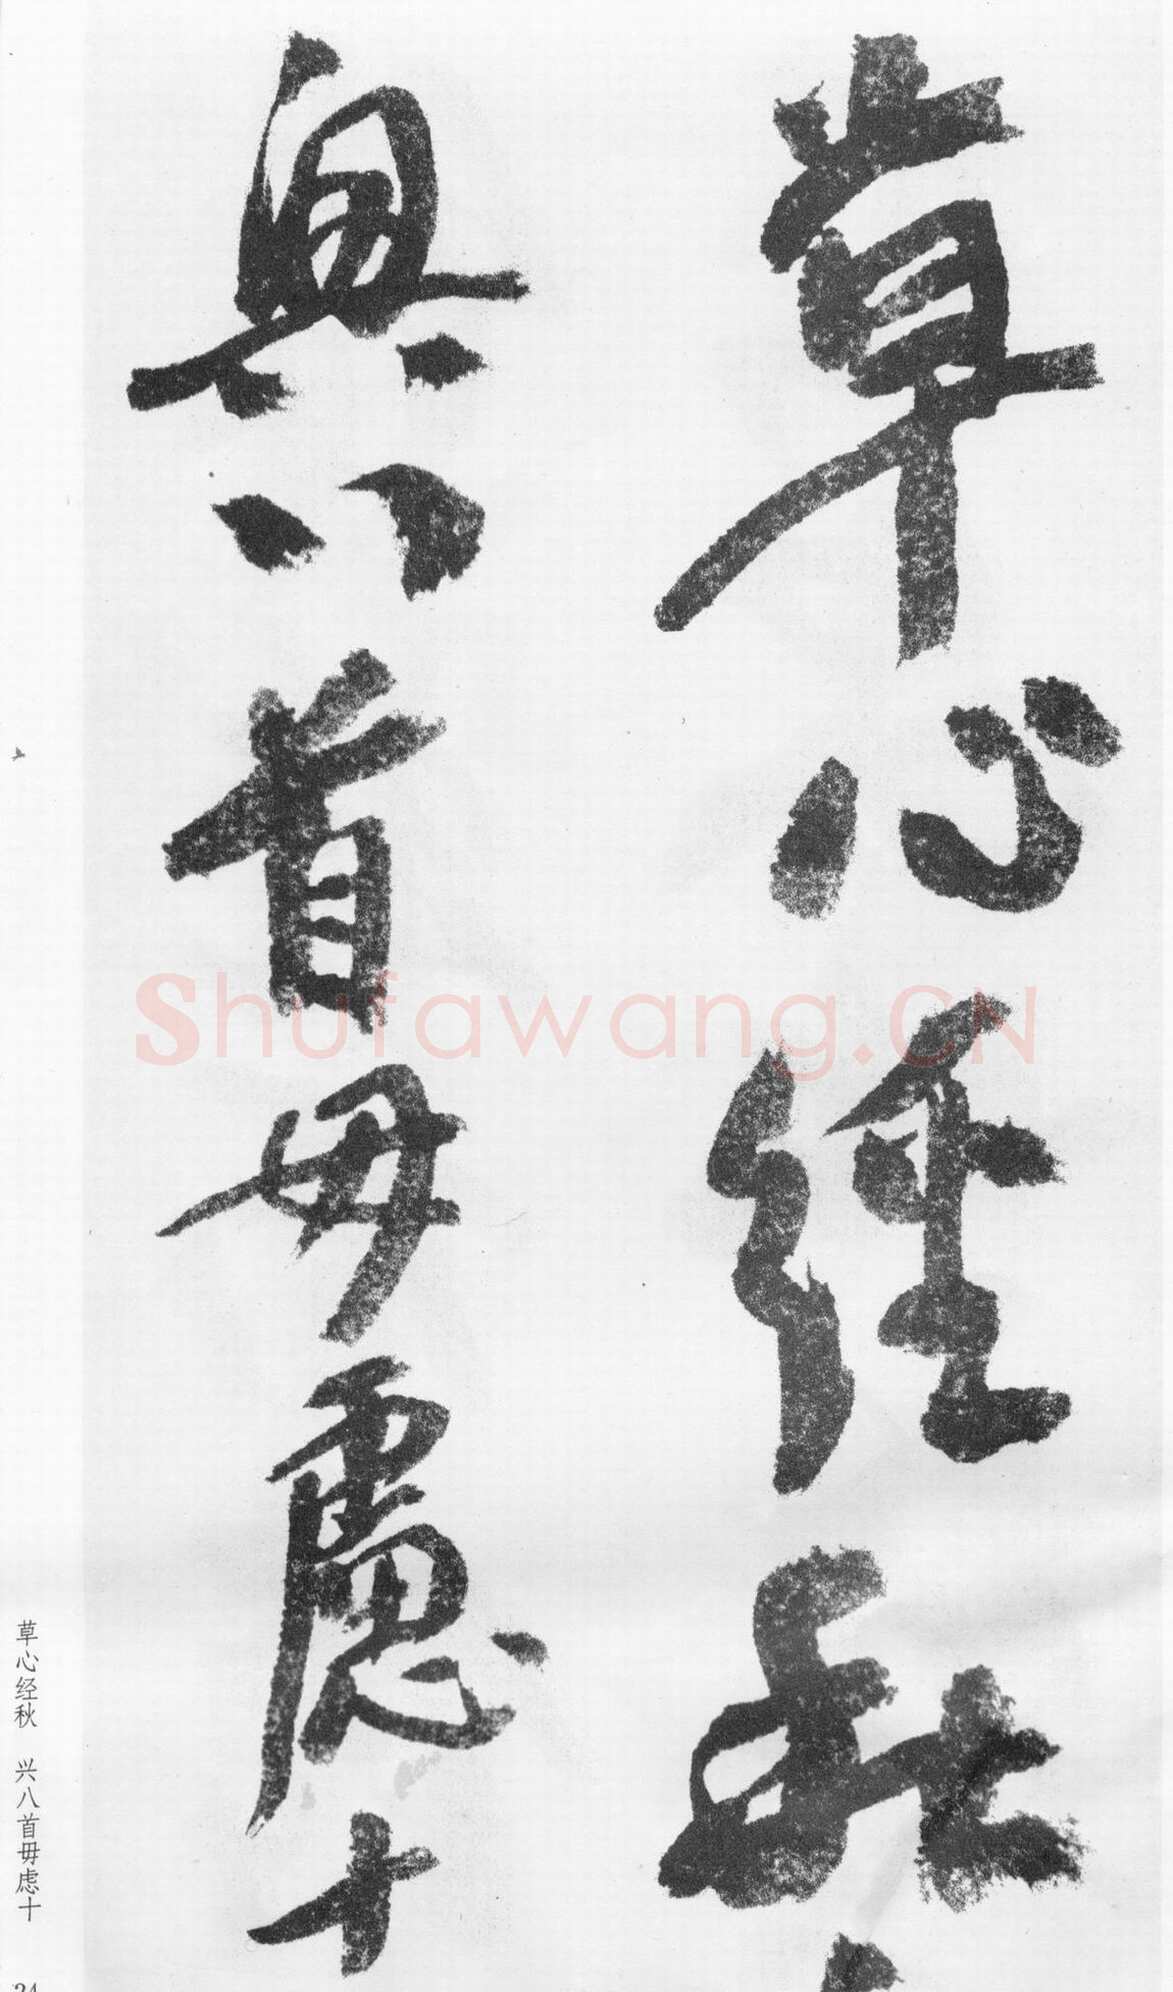 草心經秋
興八首毋慮十
草心经秋 兴八首毋虑十
Shufawang.CN
24